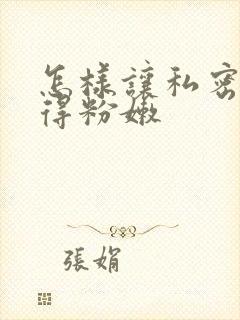 怎樣讓私密
得粉嫩
張娟